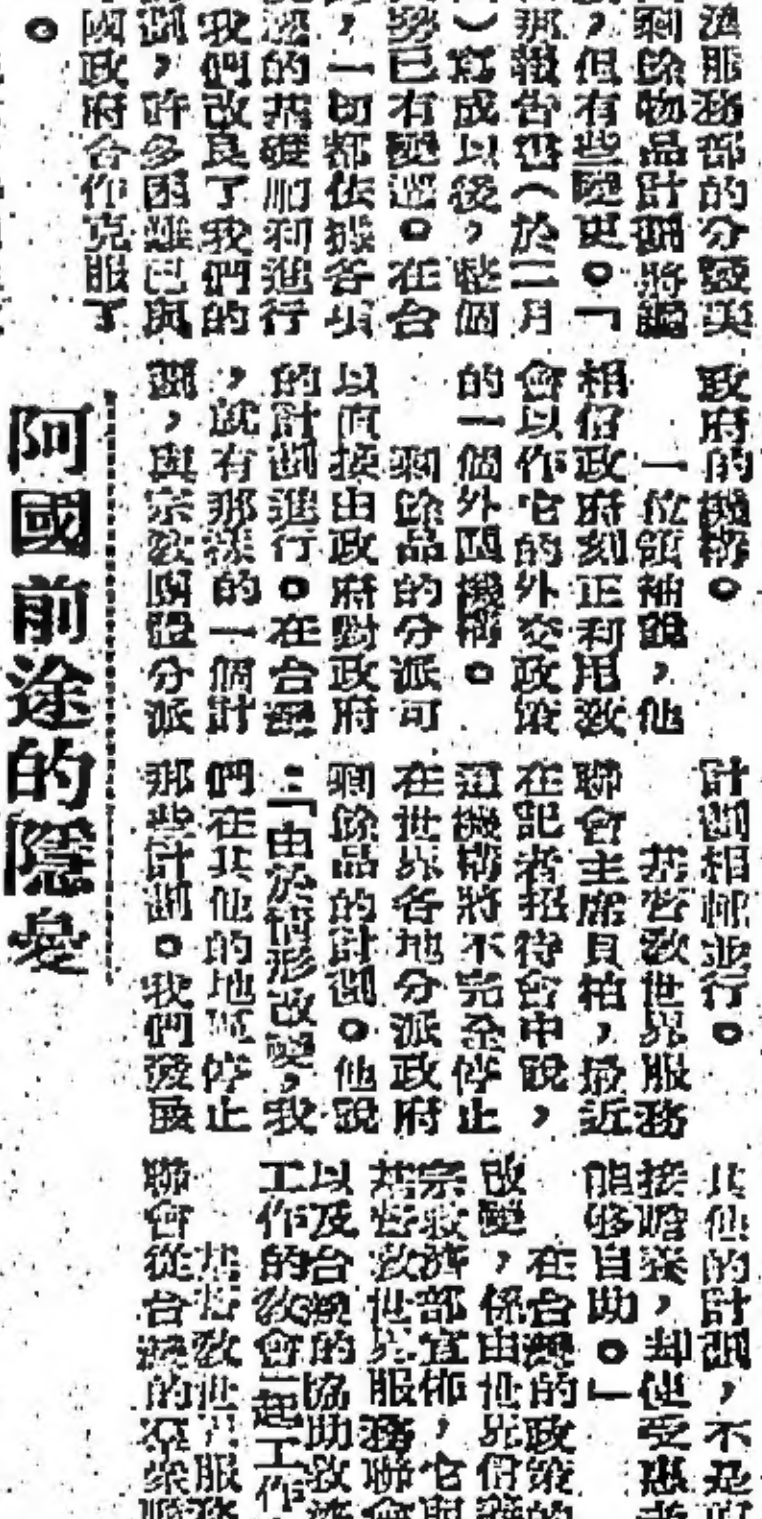 濟服務部的分發美
剩餘物品計劃將
,但有些歷史。「
那報告書(於二月
)寫成以後,整個
已有變遷。在台
,一切都依據各項
的基礎順利進行
我們改良了我們的
劃,許多困難已與
國政府合作克服了
。
政府的機構。
一位領袖說,他
相信政府刻正利用教
會以作它的外交政策
的一個外國機構。
剩餘品的分派可
以直接由政府對政府
的計劃進行。在台灣
,就有那樣的一個計
劃,與宗教團體分派
計劃相輔並行。
基督教世界服務
聯會主席貝柏,最近
在記者招待會中說,
這機構將不完全停止
在世界各地分派政府
剩餘品的計劃。他說
:「由於情形改變,我
們在其他的地區停止
那些計劃。我們發展
其他的計劃,不是
接濟災,却使受惠者
能够自助。」
在台灣的政策的
改變,係由世界信
宗救濟部宣佈,它與
基督教世界服務聯會
以及台灣的協助救濟
工作的教會一起工作
基督教世界服務
聯會從台灣的羣衆
阿國前途的隱憂